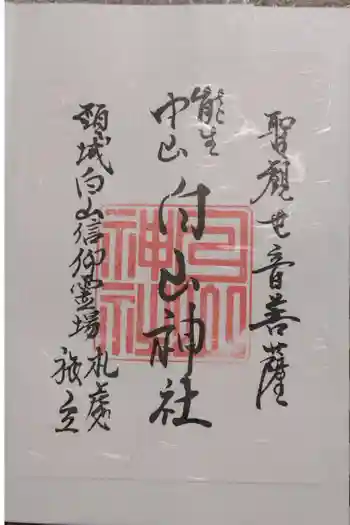 聖觀世音菩薩
能生
中山 白山神社
頚城白山信仰霊場札処
白山神社